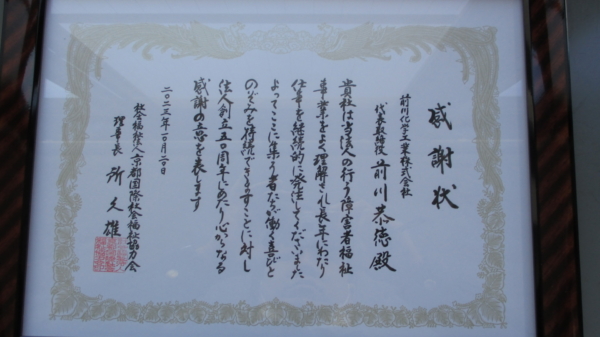 感謝状
前川化学工業株式会社
代表取締役 前川恭徳殿
貴社は当法人の行う障害者福祉
事業をよく理解され長年にわたり
仕事を継続的に発注してくださいました
よってここに集う者たちが働く喜びと
のぞみを持続できますことに対し
法人創立五〇周年にあたり心からなる
感謝の意を表します
二〇二三年一〇月二〇日
社会福祉法人京都国際社会福祉協力会
理事長 所久雄